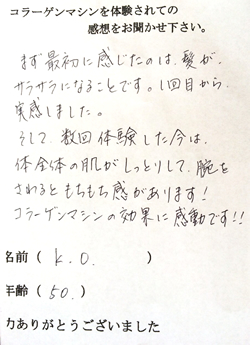 コラーゲンマシンを体験されての
感想をお聞かせ下さい。
まず最初に感じたのは、髪が、
サラサラになることです。1回目から
実感しました。
そして、数回体験した今は、
体全体の肌がしっとりして、腕を
さわるともちもち感があります!
コラーゲンマシンの効果に感動です!!
名前( K.O. )
年齢( 50. )
力ありがとうございました